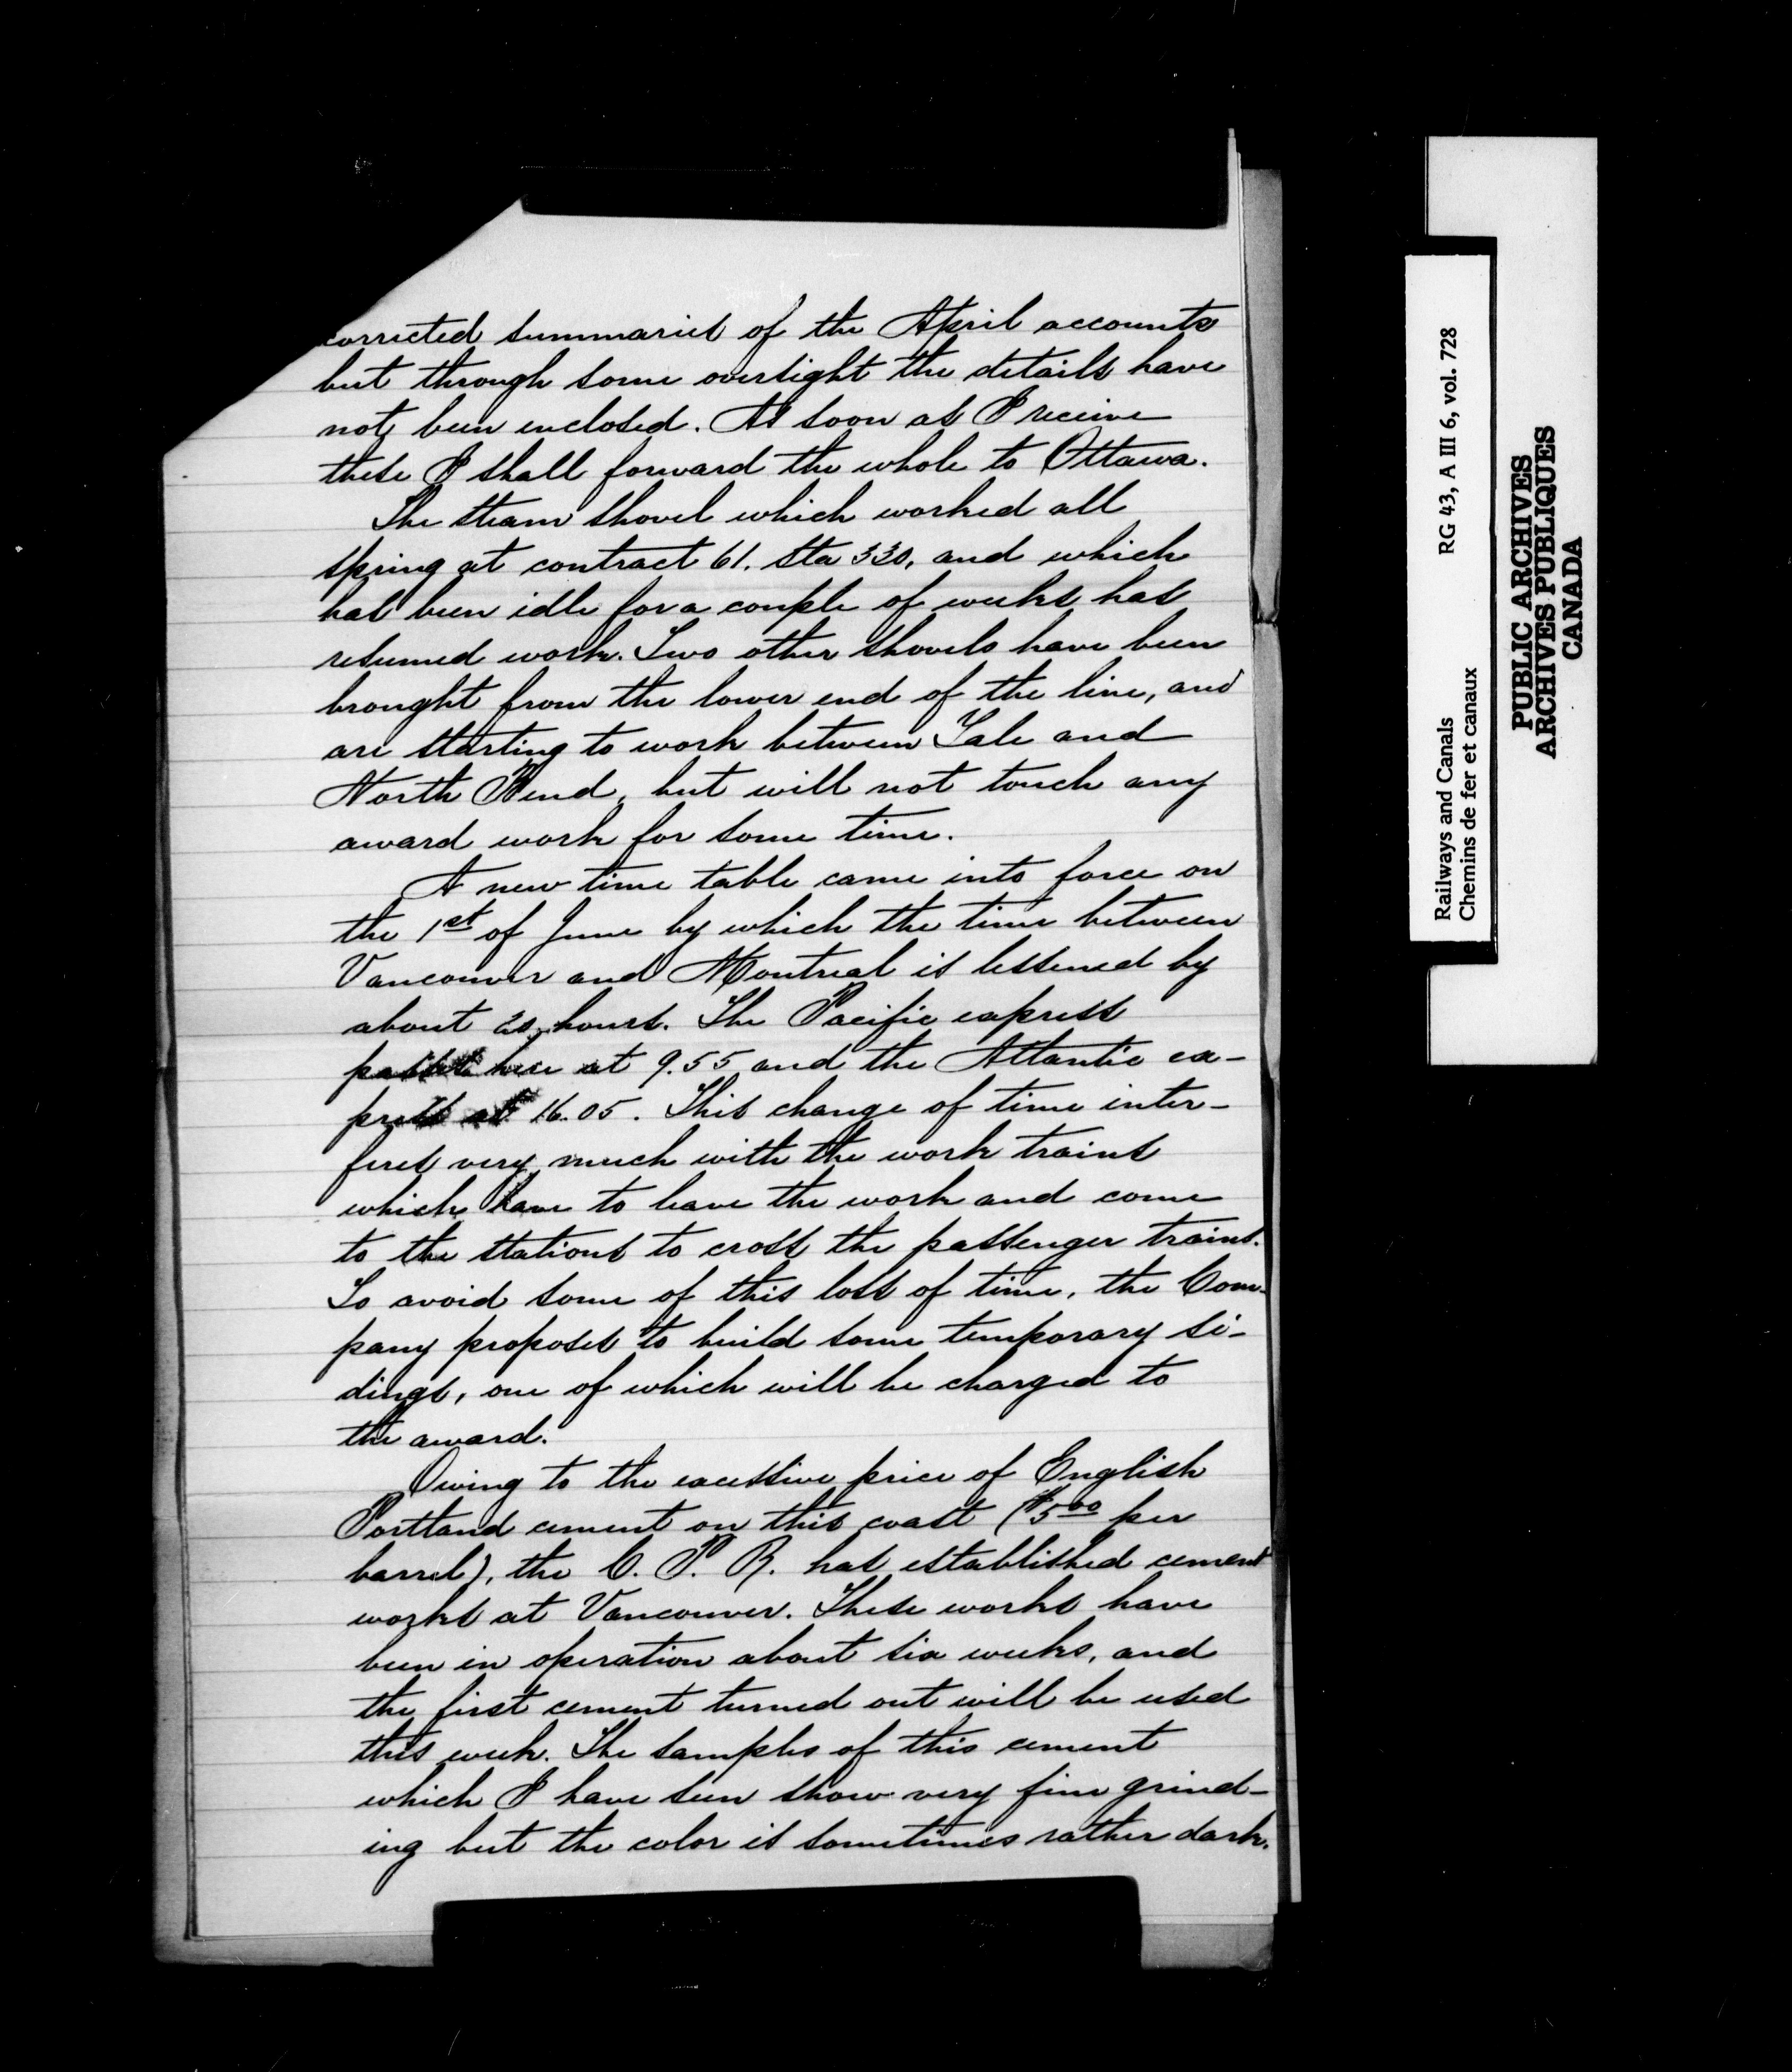 corrected summaries of the April accounts
but through some oversight the details have
not been enclosed. As soon as I receive
these I shall forward the whole to Ottawa.
The steam shovel which worked all
spring at contract 61. Sta 330, and which
has been idle for a couple of weeks has
resumed work. Two other shovels have been
brought from the lower end of the line, and
are starting to work between Yale and
North Bend, but will not touch any
award work for some time.
A new time table came into force on
the 1st of June by which the time between
Vancouver and Montreal is lessened by
about 20 hours. The Pacific express
passes here at 9.55 and the Atlantic ex-
press at 16.05. This change of time inter-
feres very much with the work trains
which have to leave the work and come
to the stations to cross the passenger trains.
To avoid some of this loss of time, the Com-
pany proposes to build some temporary si-
dings, one of which will be charged to
the award.
Owing to the excessive price of English
Portland cement on this coast ($5.00 per
barrel), the C. P. R. has established cement
works at Vancouver. These works have
been in operation about six weeks, and
the first cement turned out will be used
this week. The samples of this cement
which I have seen show very fine grind-
ing but the color is sometimes rather dark.
Railways and Canals RG 43, A III 6, vol. 728
Chemins de fer et canaux
PUBLIC ARCHIVES
ARCHIVES PUBLIQUES
CANADA